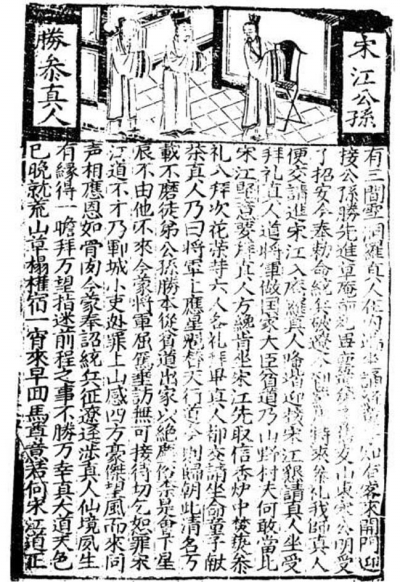 宋江公孫
勝叅真人
有三間雪洞羅真人在內 誦 知有客來開門迎
接公孫勝先進草庵 礼畢 山東宋公明受
了招安今奉勅命統兵破遼 特來叅礼我師真人
便交請進宋江入庵羅真人降階迎接宋江狠請真人坐受
拜礼真人道將軍做国家大臣貧道乃山野村夫何敢當此
宋江堅意要拜真人方纔肯坐宋江先取信香炉中焚爇叅
礼八拜次花荣等六人各礼拜真人都交請坐命童子献
茶真人乃曰將軍上應星魁替天行道今則歸朝此清名万
載不磨徒弟公孫勝本從貧道出家以絶塵俗柰是會下星
辰不由他不來今蒙將軍屈駕垂訪無可接待切乞恕罪宋
江道不才乃鄆城小吏逃罪上山感四方豪傑望風而來同
声相應恩如骨肉今蒙奉詔統兵征遼逕涉真人仙境夙生
有緣得一瞻拜万望指迷前程之事不勝万幸真人道天色
已晚就荒山草榻權宿一宵來早回馬尊意若何宋江道正